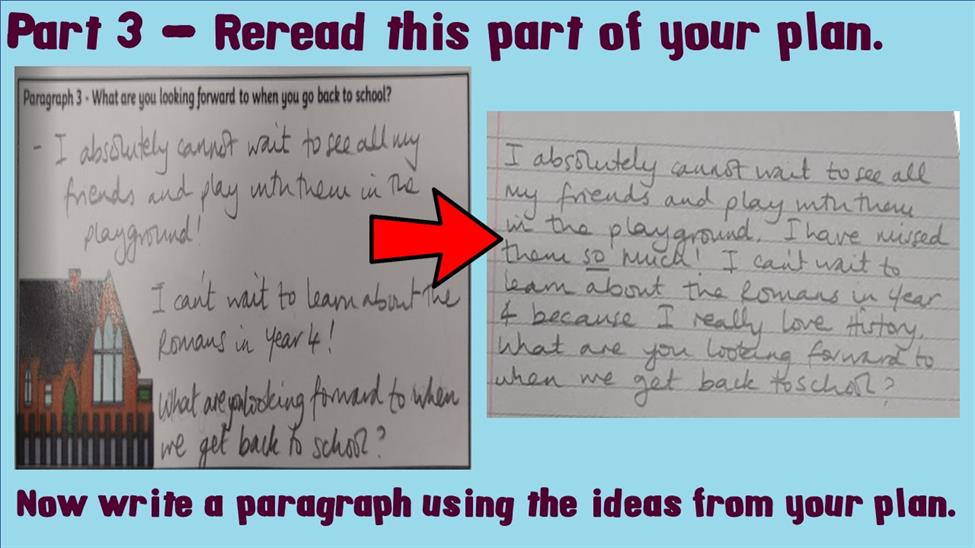 Part 3 – Reread this part of your plan.
Paragraph 3 - What are you looking forward to when you go back to school?
- I absolutely cannot wait to see all my
friends and play with them in the
playground!
I can't wait to learn about the
Romans in Year 4!
What are you looking forward to when
we get back to school?
I absolutely cannot wait to see all
my friends and play with them
in the playground. I have missed
them so much! I can't wait to
learn about the Romans in Year
4 because I really love History.
What are you looking forward to
when we get back to school?
Now write a paragraph using the ideas from your plan.